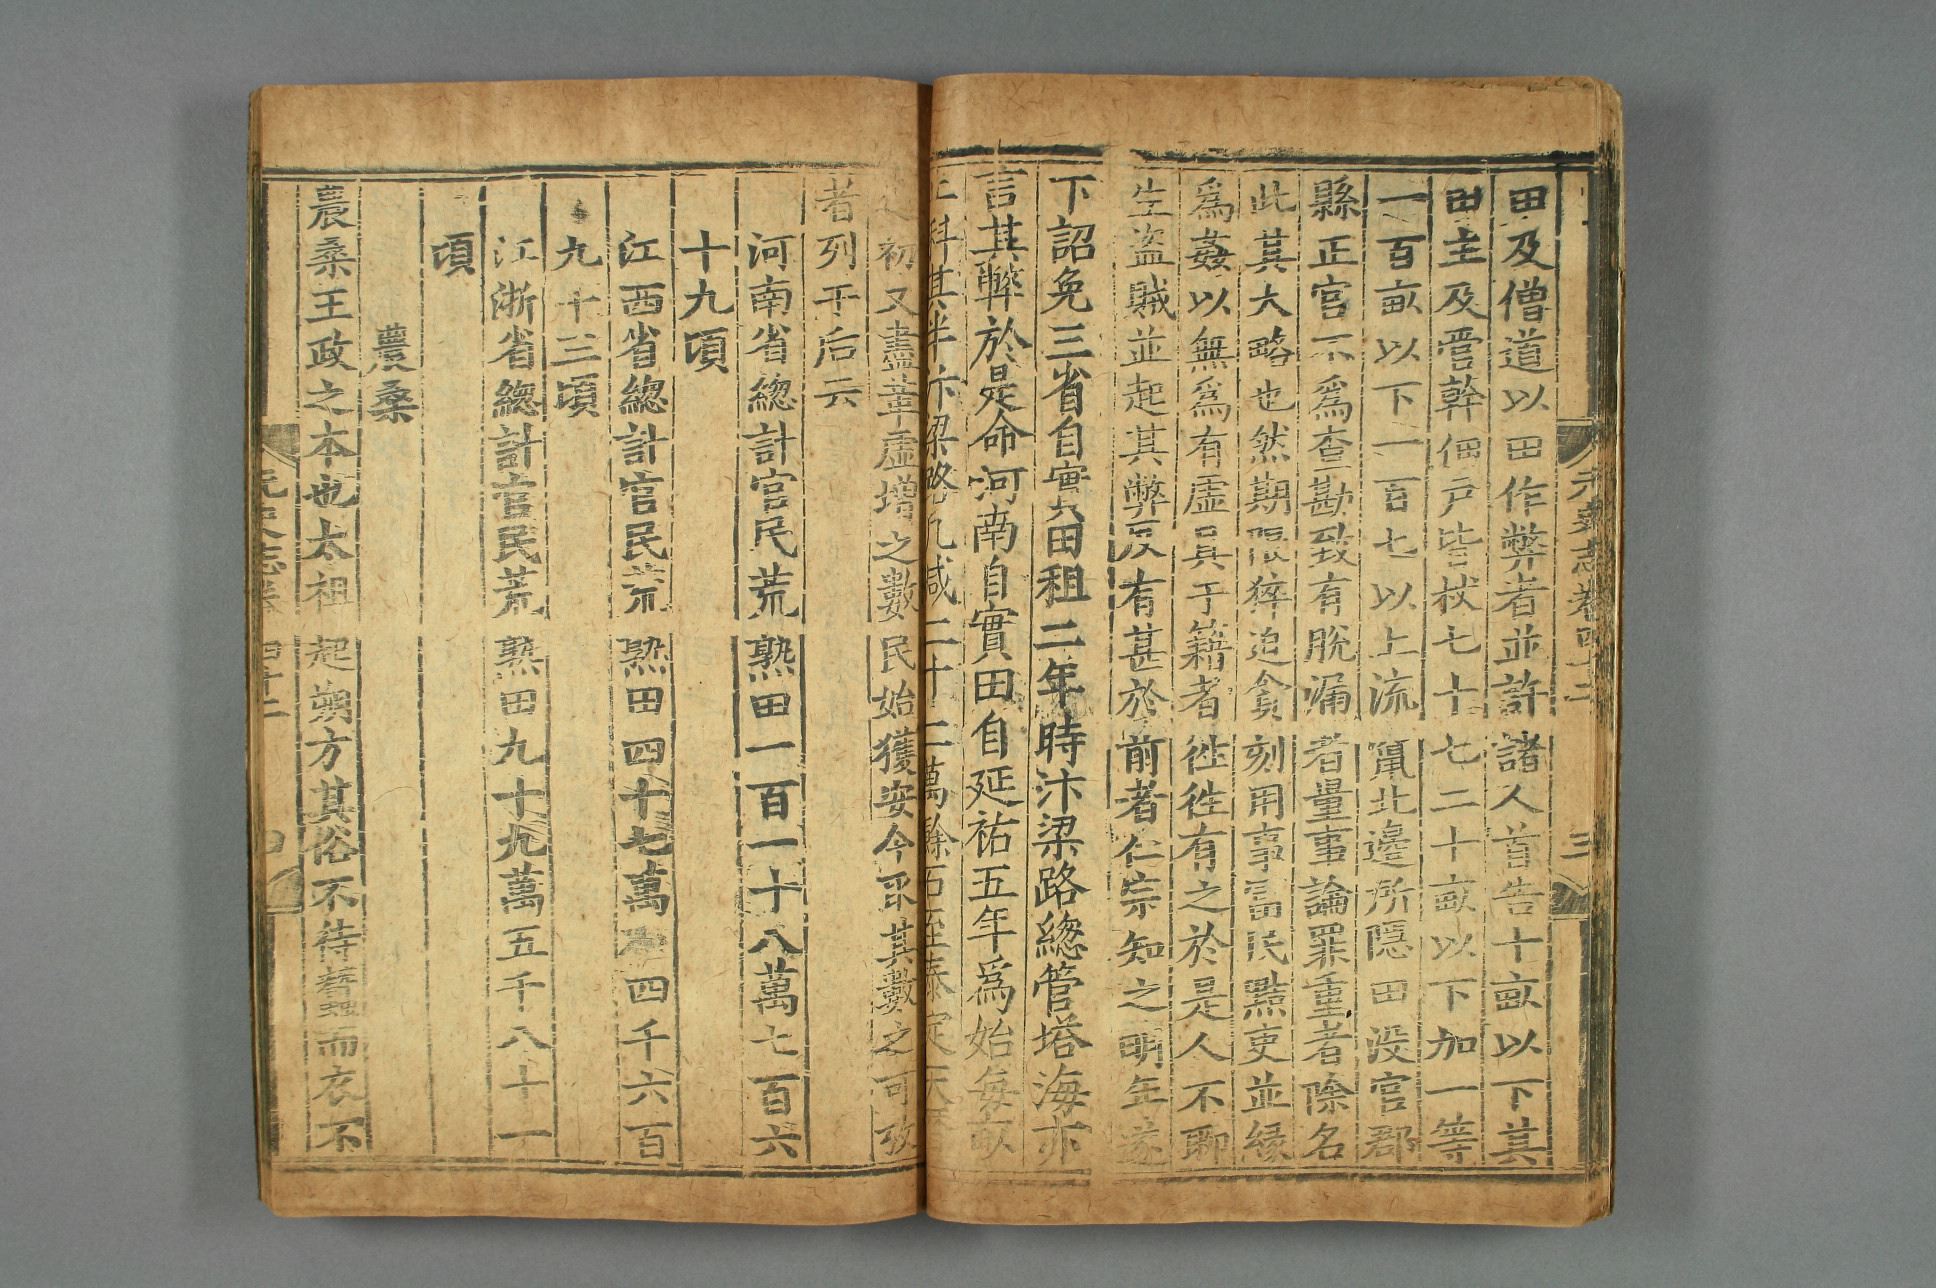 元史志卷四十二
三
田及僧道以田作弊者並許諸人首告十畝以下其
田主及管幹佃戶皆杖七十七二十畝以下加一等
一百畝以下一百七以上流竄北邊所隱田沒官郡
縣正官不爲查勘致有脫漏者量事論罪重者除名
此其大略也然期限猝迫貪刻用事富民黠吏並緣
爲姦以無爲有虛具于籍者往往有之於是人不聊
生盗賊並起其弊反有甚於前者仁宗知之明年遂
下詔免三省自實田租二年時汴梁路緫管塔海亦
言其弊於是命河南自實田自延祐五年爲始每畝
止科其半汴梁路凡減二十二萬餘石至泰定天曆
之初又盡革虛增之數民始獲安今取其數之可攷
者列于后云
河南省緫計官民荒熟田一百一十八萬七百六
十九頃
江西省緫計官民荒熟田四十七萬四千六百
九十三頃
江浙省緫計官民荒熟田九十九萬五千八十一
頃
農桑
農桑王政之本也太祖起朔方其俗不待蠶而衣不
元史志卷四十二
四